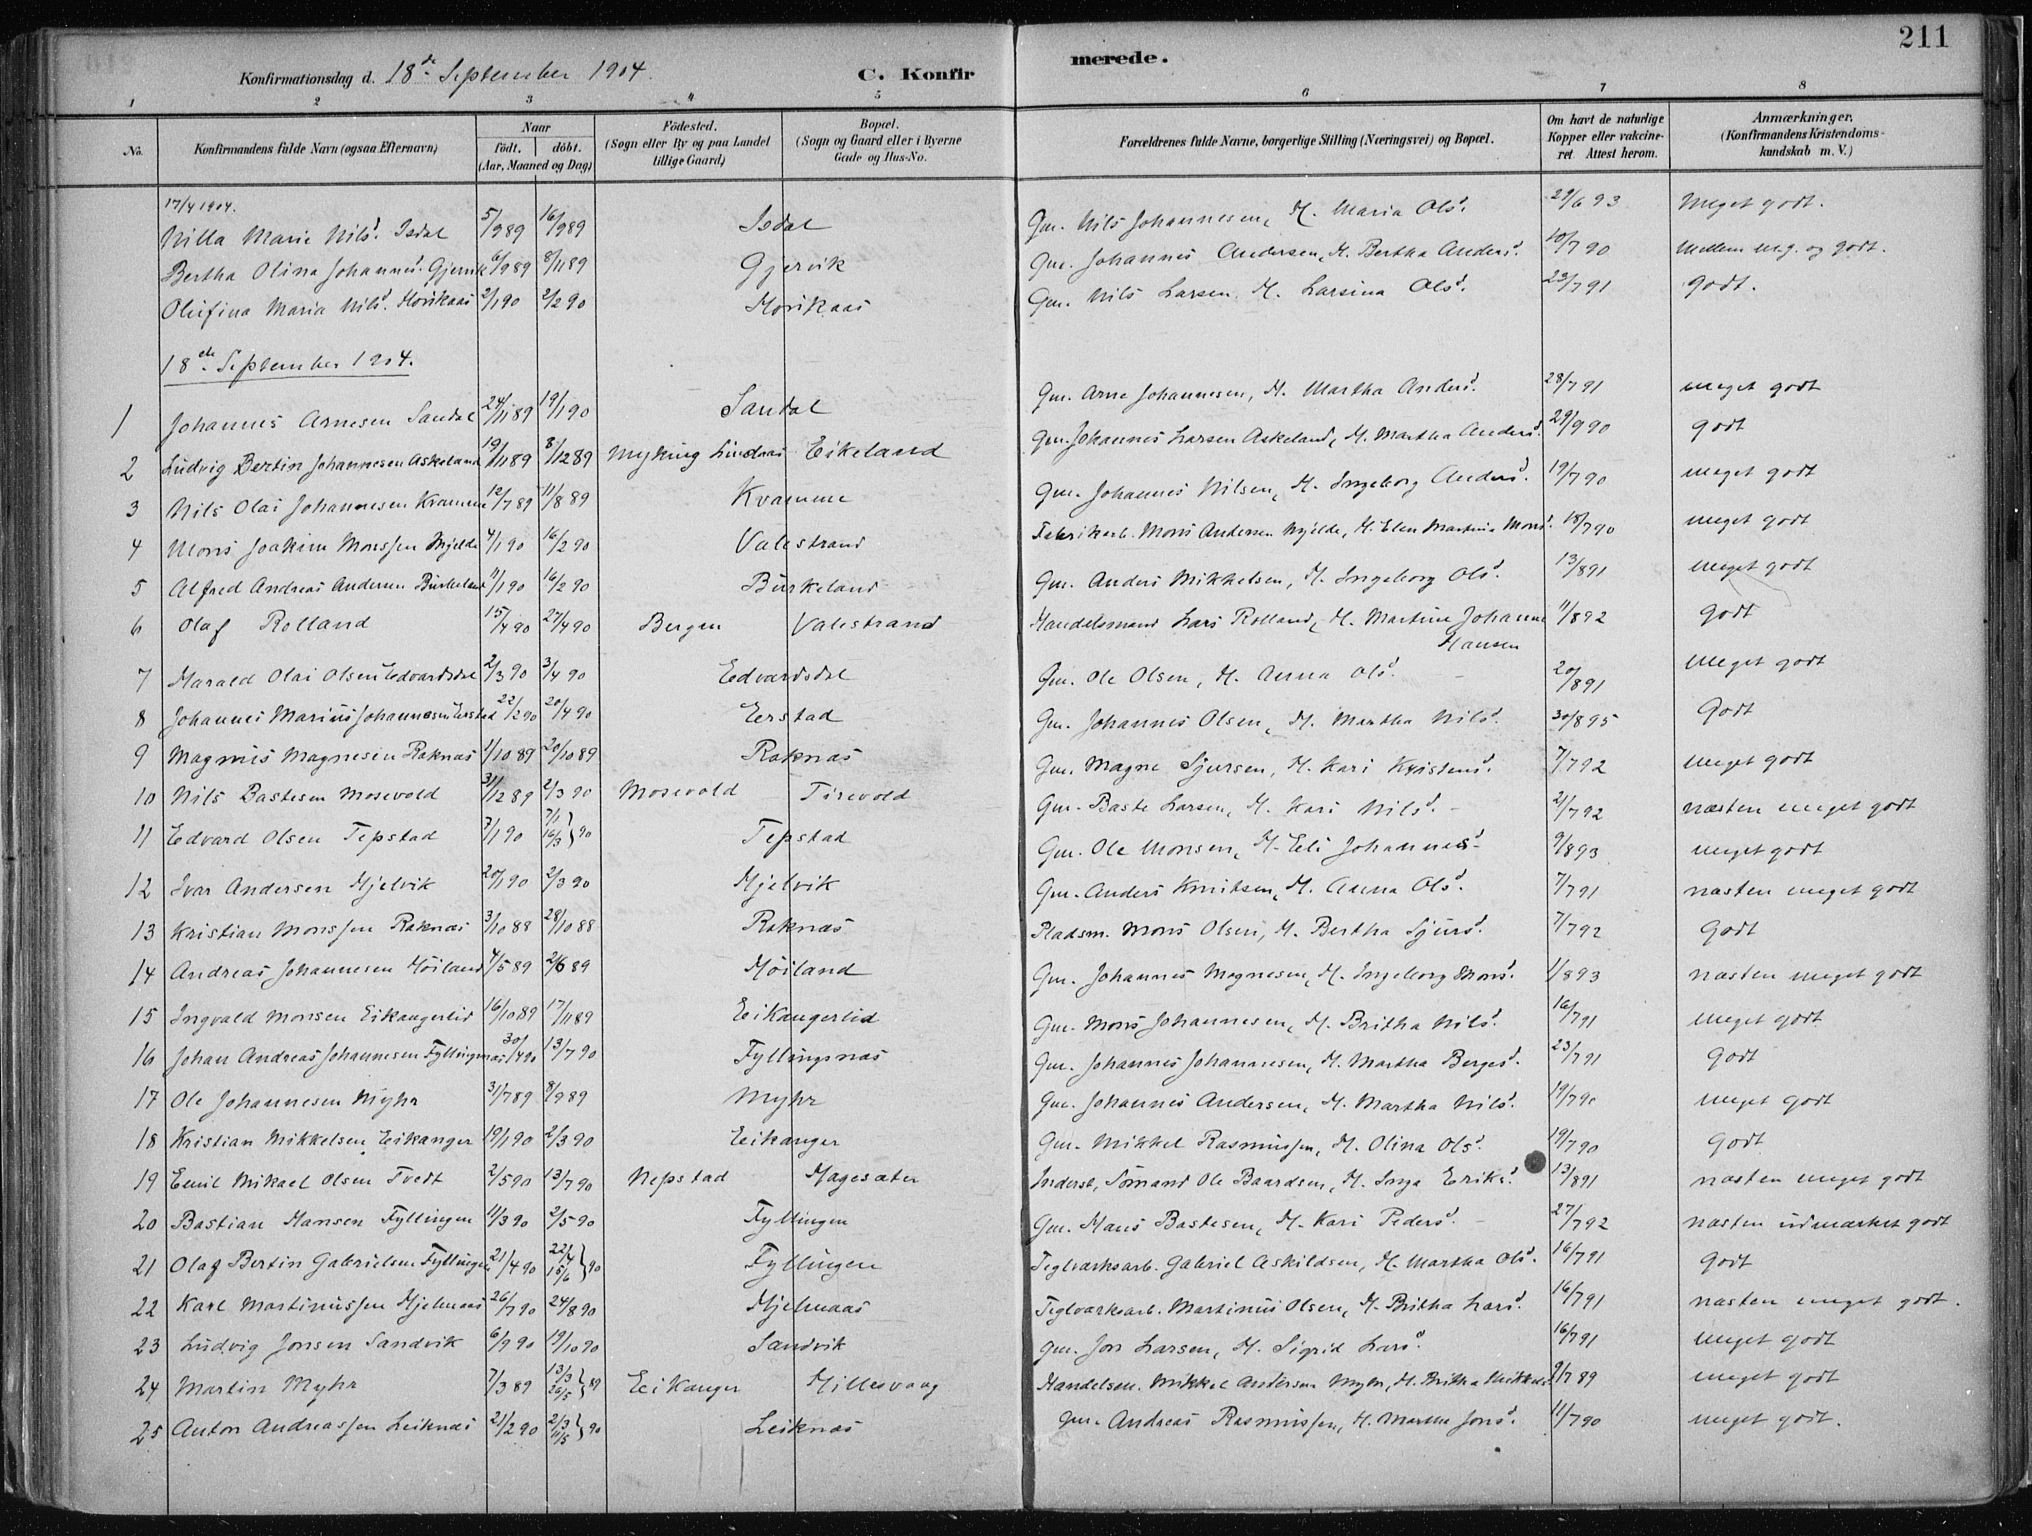 211
Konfirmationsdag d. 18de September 1904. C. Konfirmerede.
1 2 3 4 5 6 7 8
No. Konfirmandens fulde Navn (ogsaa Efternavn) Naar født. døbt. (Aar, Maaned og Dag) Fødested. (Sogn eller By og paa Landet tillige Gaard) Bopæl. (Sogn og Gaard eller i Byerne Gade og Hus-No. Forældrenes fulde Navne, borgerlige Stilling (Næringsvei) og Bopæl. Om havt de naturlige Kopper eller vakcineret Attest herom. Anmærkninger. (Konfirmandens Kristendomskundskab m. V.)
17/4 1904.
Nilla Marie Nilsd. Isdal 5/9 89 16/9 89 Isdal Gm. Nils Johannesen, H. Maria Olsd. 29/6 93 Meget godt.
Bertha Olina Johannesd. Gjervik 6/9 89 8/11 89 Gjervik Gm. Johannes Andersen, H. Bertha Andersd. 10/7 90 Mellem m.g. og godt.
Olufina Maria Nilsd. Horikaas 2/1 90 2/2 90 Horikaas Gm. Nils Larsen, H. Larsina Olsd. 23/7 91 godt.
18de September 1904.
1 Johannes Arnesen Sandal 24/11 89 19/1 90 Sandal Gm. Arne Johannesen, H. Martha Andersd. 28/7 91 meget godt
2 Ludvig Bertin Johannesen Askeland 19/11 89 8/12 89 Myking Lindaas Eikeland Gm. Johannes Larsen Askeland, H. Martha Andersd. 29/9 90 godt
3 Nils Olai Johannesen Kvamme 12/7 89 11/8 89 Kvamme Gm. Johannes Nilsen, H. Ingeborg Andersd. 19/7 90 meget godt
4 Mons Joakim Monssen Mjelde 4/1 90 16/2 90 Valestrand Fabrikarb. Mons Andersen Mjelde, H. Elen Martina Monsd. 18/7 90 meget godt
5 Alfred Andreas Andersen Burkeland 11/1 90 16/2 90 Burkeland Gm. Anders Mikkelsen, H. Ingeborg Olsd. 13/8 91 meget godt
6 Olaf Rolland 15/4 90 27/4 90 Bergen Valestrand Handelsmand Lars Rolland, H. Martine Johanne 11/8 92 godt
Hansen
7 Harald Olai Olsen Edvardsdal 2/3 90 3/4 90 Edvardsdal Gm. Ole Olsen, H. Anna Olsd. 20/8 91 meget godt
8 Johannes Marius Johannesen Eerstad 22/2 90 20/4 90 Eerstad Gm. Johannes Olsen, H. Martha Nilsd. 30/8 95 Godt
9 Magnus Magnesen Raknæs 1/10 89 20/10 89 Raknæs Gm. Magne Sjursen, H. Kari Kristensd. 7/7 92 meget godt
10 Nils Bastesen Mosevold 31/12 89 2/3 90 Mosevold Tirevold Gm. Baste Larsen, H. Kari Nilsd. 21/7 92 næsten meget godt
11 Edvard Olsen Tepstad 7/1 90 7/1 16/3 } 90 Tepstad Gm. Ole Monsen, H. Eli Johannesd. 9/8 93 meget godt
12 Ivar Andersen Hjelvik 20/1 90 2/3 90 Hjelvik Gm. Anders Knutsen, H. Anna Olsd. 7/7 91 næsten meget godt
13 Kristian Monssen Raknæs 3/10 88 28/10 88 Raknæs Pladsm. Mons Olsen, H. Bertha Sjursd. 7/7 92 Godt
14 Andreas Johannesen Høiland 4/5 89 2/6 89 Høiland Gm. Johannes Magnesen, H. Ingeborg Monsd. 1/8 93 næsten meget godt
15 Ingvald Monsen Eikangerlid 16/10 89 17/11 89 Eikangerlid Gm. Mons Johannesen, H. Britha Nilsd. 16/7 91 meget godt
16 Johan Andreas Johannesen Fyllingsnæs 30/4 90 13/7 90 Fyllingsnæs Gm. Johannes Johannesen, H. Martha Bergesd. 23/7 91 godt
17 Ole Johannesen Myhr 31/7 89 8/9 89 Myhr Gm. Johannes Andersen, H. Martha Nilsd. 19/7 90 meget godt
18 Kristian Mikkelsen Eikanger 19/1 90 2/3 90 Eikanger Gm. Mikkel Rasmussen, H. Olina Olsd. 19/7 90 godt
19 Emil Mikael Olsen Tvedt 2/5 90 13/7 90 Nepstad Hagesæter Inderst, Sømand Ole Baardsen, H. Inga Eriksd. 13/8 91 næsten meget godt
20 Bastian Hansen Fyllingen 11/3 90 2/5 90 Fyllingen Gm. Hans Bastesen, H. Kari Pedersd. 27/7 92 næsten udmærket godt
21 Olaf Bertin Gabrielsen Fyllingen 21/4 90 22/4 15/6 } 90 Fyllingen Teglværksarb. Gabriel Askildsen, H. Martha Olsd. 16/7 91 godt
22 Karl Martinussen Hjelmaas 26/7 90 24/8 90 Hjelmaas Teglværksarb. Martinus Olsen, H. Britha Larsd. 16/7 91 næsten meget godt.
23 Ludvig Jonsen Sandvik 6/9 90 19/10 90 Sandvik Gm. Jon Larsen, H. Sigrid Larsd. 16/7 91 meget godt
24 Martin Myhr 7/3 89 13/3 26/5 } 89 Eikanger Hillesvaag Handelsm. Mikkel Andersen Myhr, H. Britha Mikkelsd. 9/7 89 meget godt
25 Anton Andreassen Leiknæs 21/2 90 2/3 11/5 } 90 Leiknæs Gm. Andreas Rasmussen, H. Martha Jonsd. 11/7 90 meget godt.